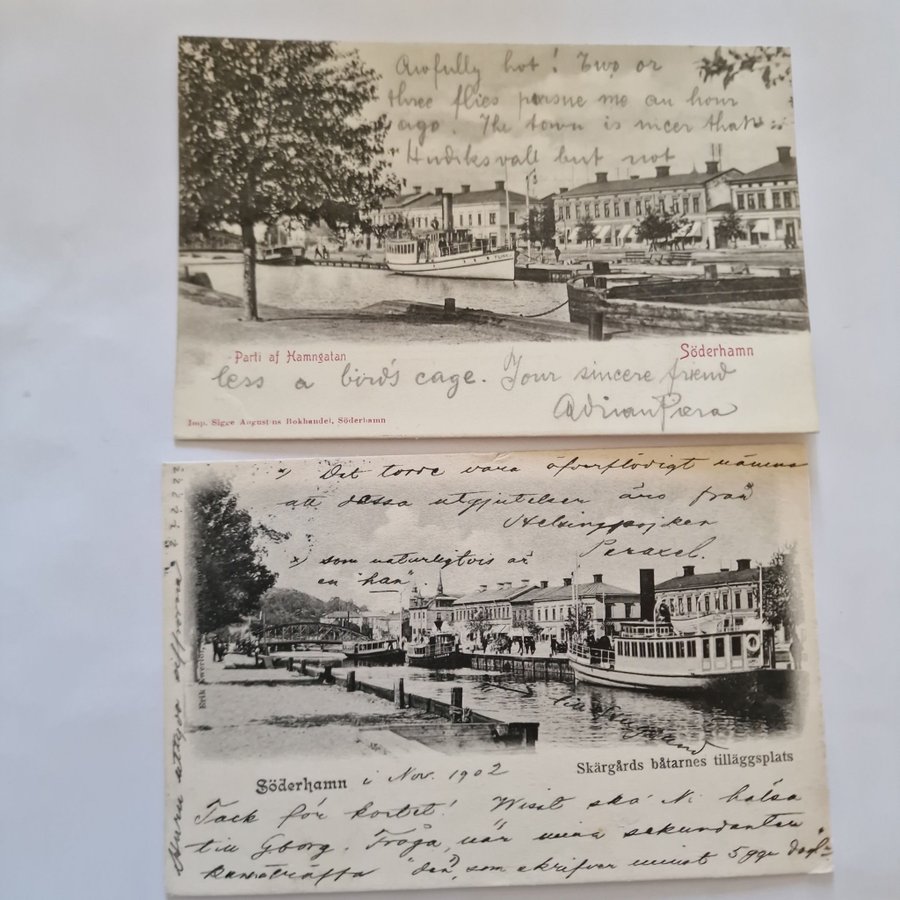 Awfully hot! Two or
three flies persue me an hour
ago. The town is nicer than
Hudiksvall but not
Parti af Hamngatan
Söderhamn
less a bird's cage. Your sincere friend
Adrian Piera
Imp. Sigge Augustins Bokhandel, Söderhamn
x) Det torde vara öfverflödigt nämna
att dessa utgjutelser äro från
Helsingepojken
Peraxel.
x) som naturligtvis är
en "han"
Skärgårds båtarnes tilläggsplats
Söderhamn i Nov. 1902
Tack för kortet! Visst ska Ni hälsa
till Gborg. Fråga, när mina sekundanter
kunna träffa "den", som skrifver minst 5 ggr